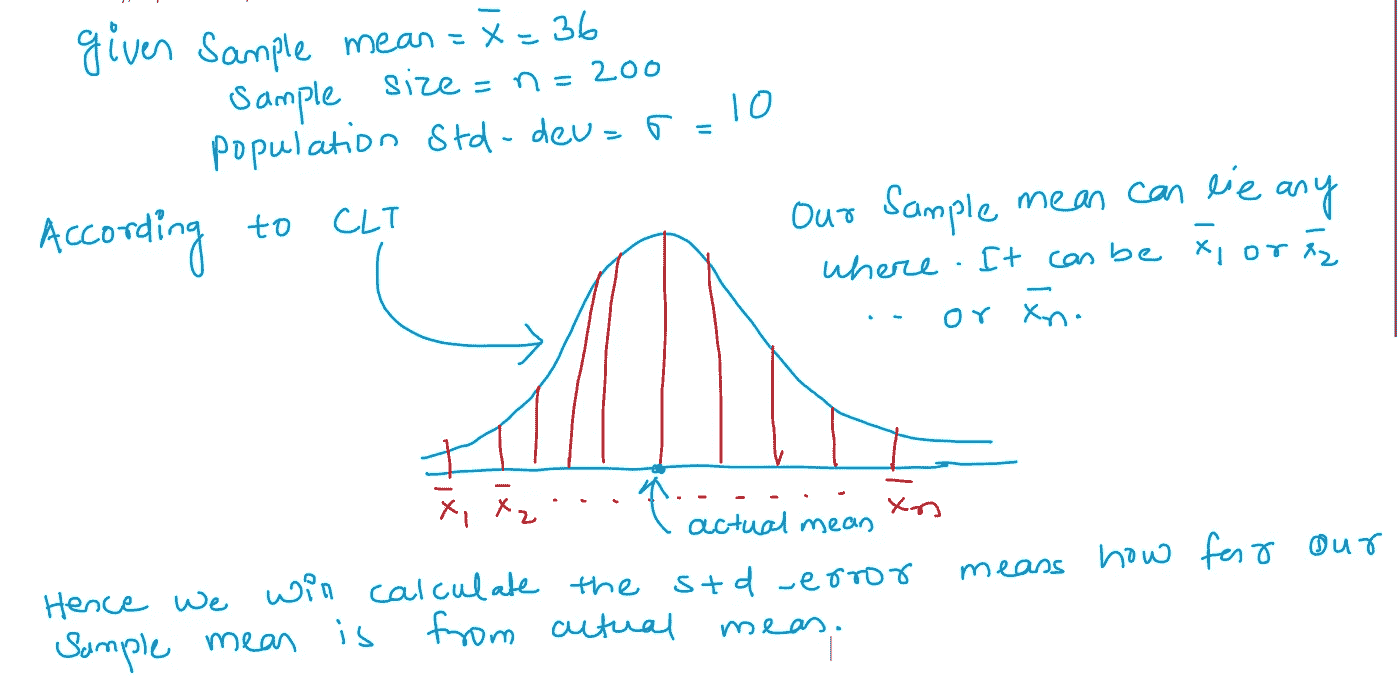 given Sample mean = x̄ = 36
Sample size = n = 200
Population Std-dev = σ = 10
According to CLT
Our Sample mean can lie any
where. It can be x̄1 or x̄2
.. or x̄n.
x̄1 x̄2 . . . . . . . . . . x̄n
actual mean
Hence we will calculate the std-error means how far our
Sample mean is from actual mean.